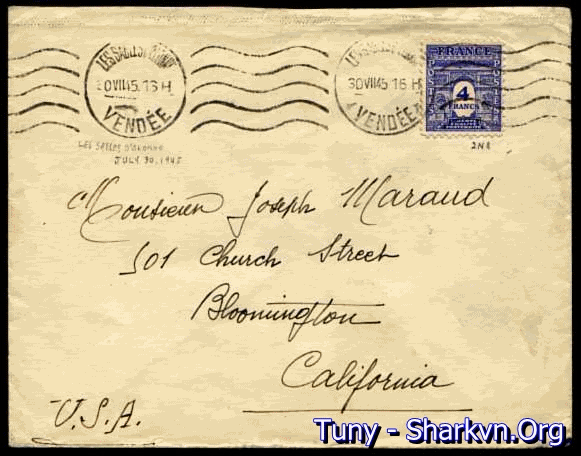 LES SABLES D'OLONNE
30 VII 45 16 H
VENDÉE
LES SABLES D'OLONNE
30 VII 45 16 H
VENDÉE
FRANCE
POSTES
POSTES
4
FRANCS
LIBERTÉ
ÉGALITÉ
FRATERNITÉ
LES SABLES D'OLONNE
JULY 30, 1945
2N8
Monsieur Joseph Maraud
501 Church Street
Bloomington
California
U.S.A.
Tuny - Sharkvn.Org